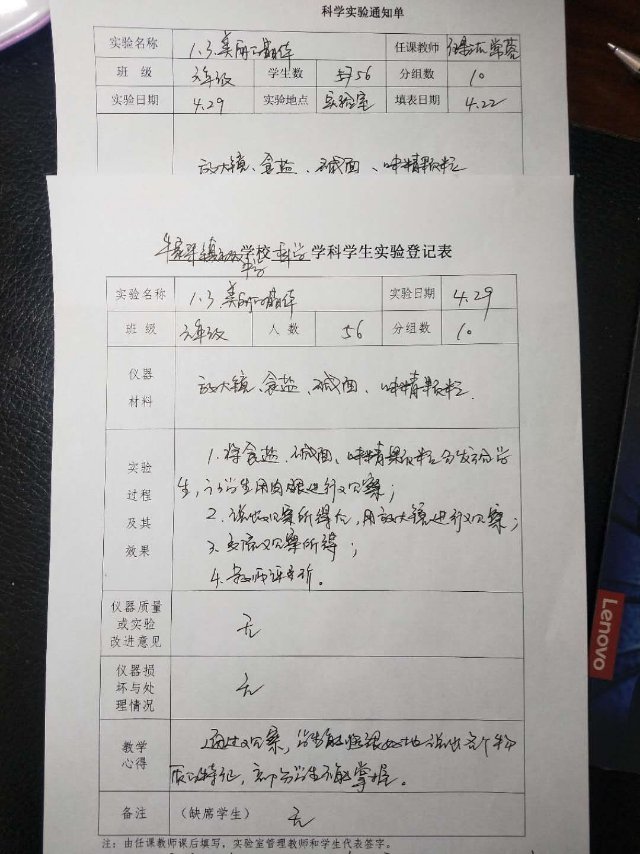 科学实验通知单
实验名称 1.3美丽的晶体 任课教师
班 级 六年级 学生数 56 分组数 10
实验日期 4.29 实验地点 实验室 填表日期 4.22
放大镜、食盐、碱面、味精颗粒
学校 科学 学科学生实验登记表
中学
实验名称 1.3美丽的晶体 实验日期 4.29
班 级 六年级 人 数 56 分组数 10
仪器
材料
放大镜、食盐、碱面、味精颗粒.
实验
过程
及其
效果
1.将食盐、碱面、味精颗粒分发给学
生,让学生用肉眼进行观察;
2.说出观察所得后,用放大镜进行观察;
3.交流观察所得;
4.教师评析。
仪器质量
或实验
改进意见
无
仪器损
坏与处
理情况
无
教学
心得
通过观察,学生能很好地说出各个物
质的特征,部分学生不能掌握。
备注 (缺席学生) 无
注:由任课教师课后填写,实验室管理教师和学生代表签字。
Lenovo